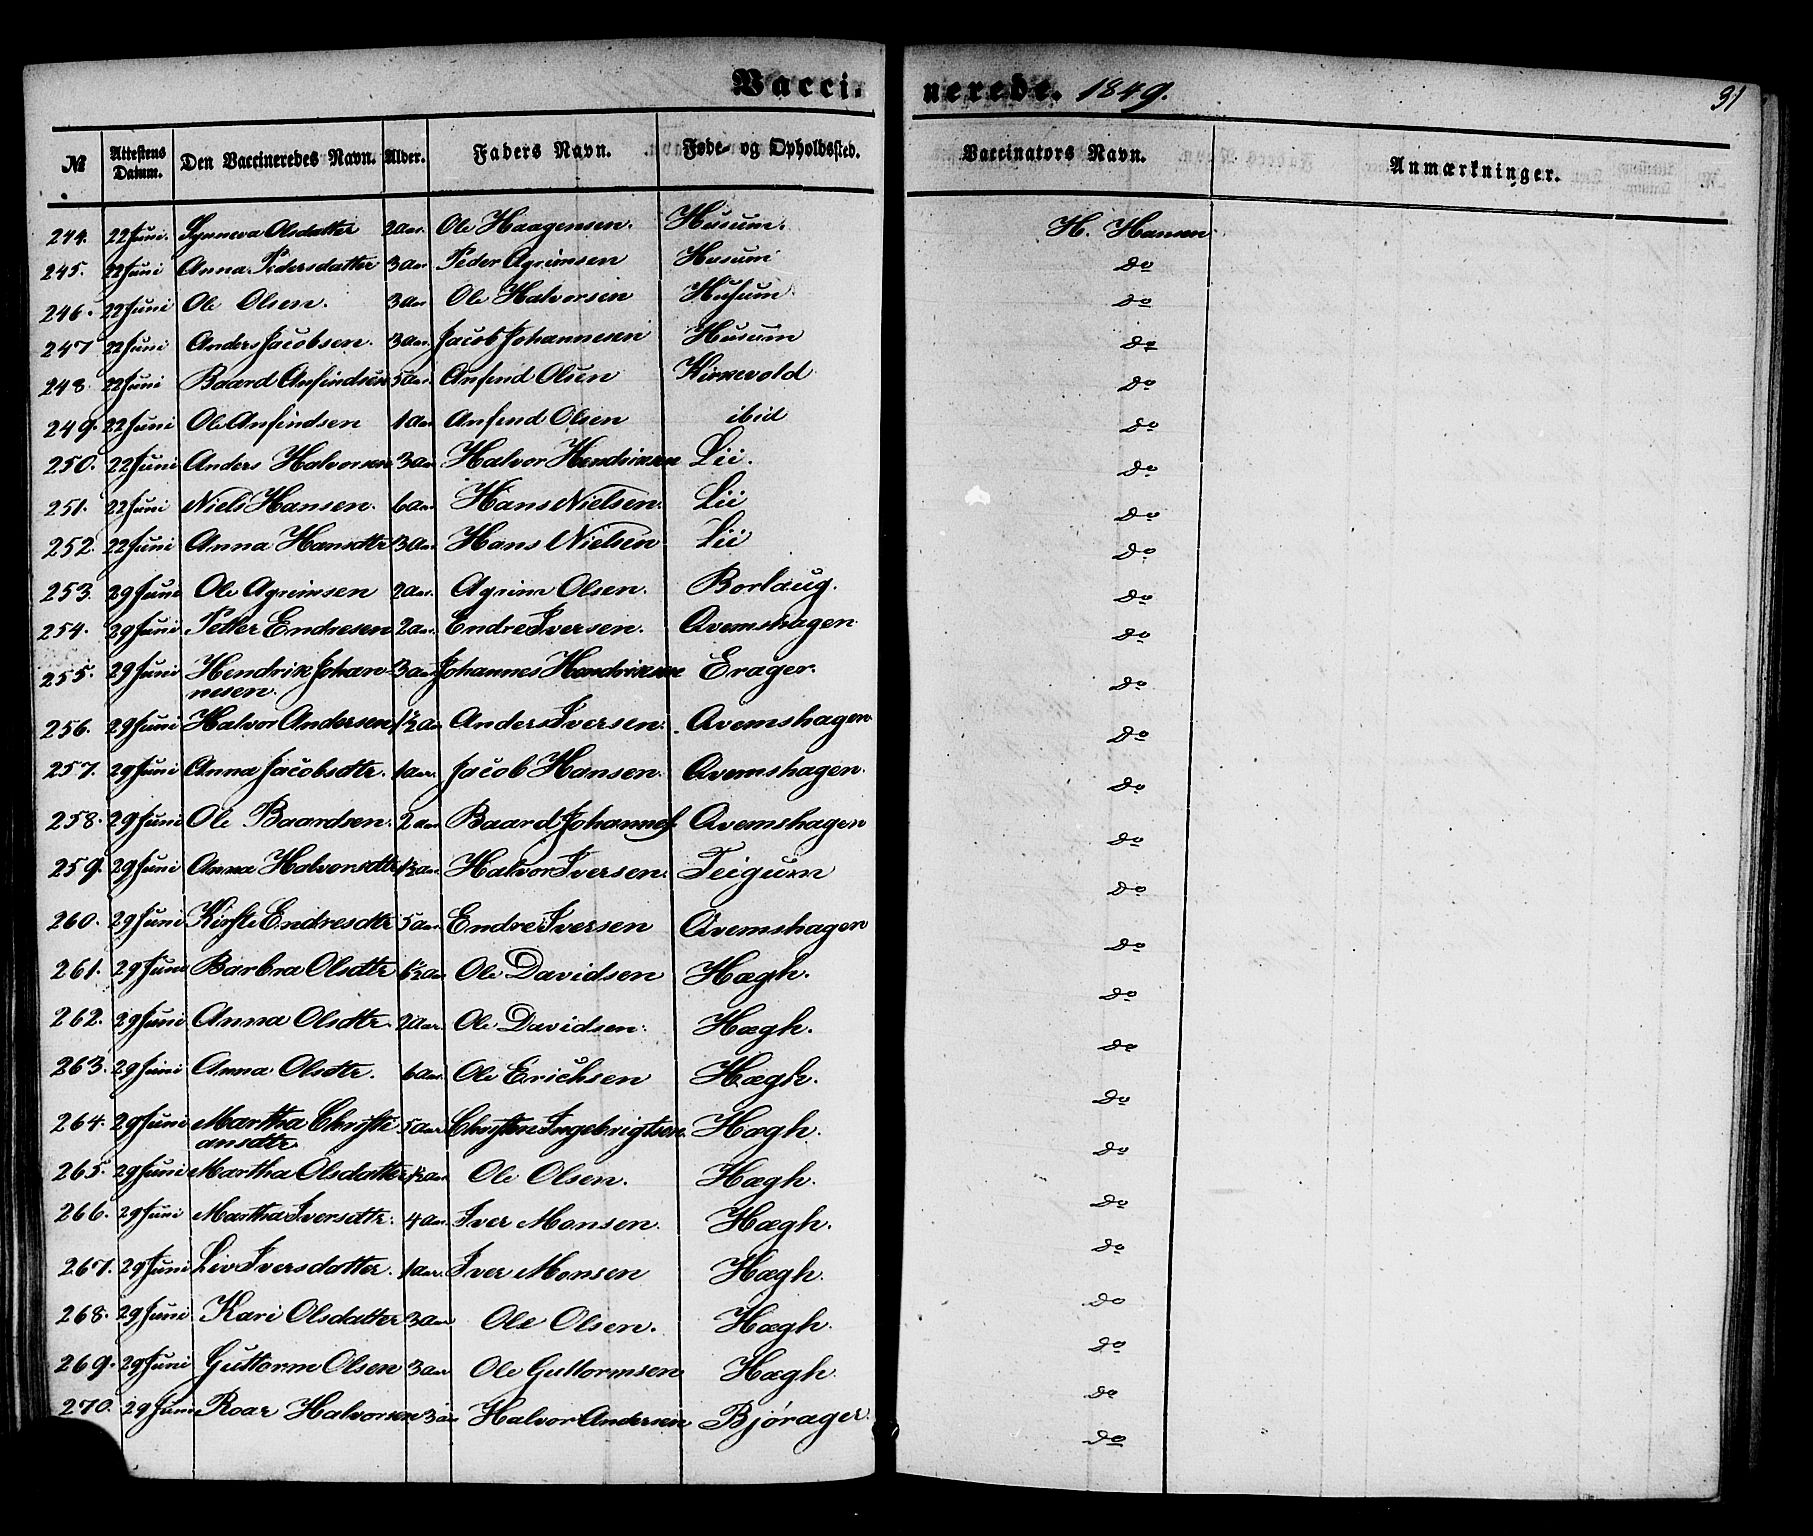 Vaccinerede. 1849. 31
№ Attestens Datum. Den Vaccineredes Navn. Alder. Faders Navn. Føde- og Opholdssted. Vaccinators Navn. Anmærkninger.
244. 22 Juni. Synneva Olsdatter 2 aar. Ole Haagensen. Husum. H. Hansen
245. 22 Juni Anna Pedersdatter 3 aar Peder Agrimsen Husum do
246. 22 Juni Ole Olsen. 3 aar Ole Halvorsen Husum. do
247 22 Juni Anders Jacobsen. 3 aar. Jacob Johannesen Husum do
248. 22 Juni Baard Anfindsen 5 aar. Anfind Olsen Kirkevold do
249. 22 Juni Ole Anfindsen 1 aar Anfind Olsen ibid do
250. 22 Juni Anders Halvorsen 3 aar Halvor Hendriksen Lii. do
251. 22 Juni Niels Hansen. 6 aar. Hans Nielsen. Lii do
252. 22 Juni Anna Hansdtr 3 aar Hans Nielsen Lii do
253. 29 Juni Ole Agrimsen 2 aar. Agrim Olsen. Borlaug. do
254. 29 Juni Petter Endresen 2 aar. Endre Iversen. Qvemshagen do
255. 29 Juni Hendrik Johan- 3 aar Johannes Hendriksen Erager. do
nesen.
256. 29 Juni Halvor Andersen 1½ aar Anders Iversen. Qvemshagen do
257. 29 Juni Anna Jacobsdtr. 1 aar. Jacob Hansen. Qvemshagen. do
258. 29 Juni Ole Baardsen. 2 aar Baard Johannes. Qvemshagen do
259. 29 Juni Anna Halvorsdtr ½ aar. Halvor Iversen. Teigum do
260. 29 Juni Kirste Endresdtr 5 aar. Endre Iversen Qvemshagen do
261. 29 Juni Barbra Olsdtr ½ aar Ole Davidsen Hægh. do
262. 29 Juni Anna Olsdtr. 2 aar. Ole Davidsen. Hægh. do
263. 29 Juni Anna Olsdtr. 6 aar. Ole Erichsen Hægh. do
264. 29 Juni Martha Christi 5 aar. Christen Ingebrigtsen. Hægh. do
ansdtr
265. 29 Juni Martha Olsdatter ½ aar Ole Olsen. Hægh. do
266. 29 Juni Martha Iversdtr. 4 aar. Iver Monsen. Hægh. do
267. 29 Juni Liv Iversdatter. 1 aar. Iver Monsen Hægh. do
268. 29 Juni Kari Olsdatter 3 aar Ole Olsen. Hægh. do
269. 29 Juni Guttorm Olsen 3 aar Ole Guttormsen Hægh. do
270. 29 Juni Roar Halvorsen 3 aar Halvor Andersen Bjórager. do